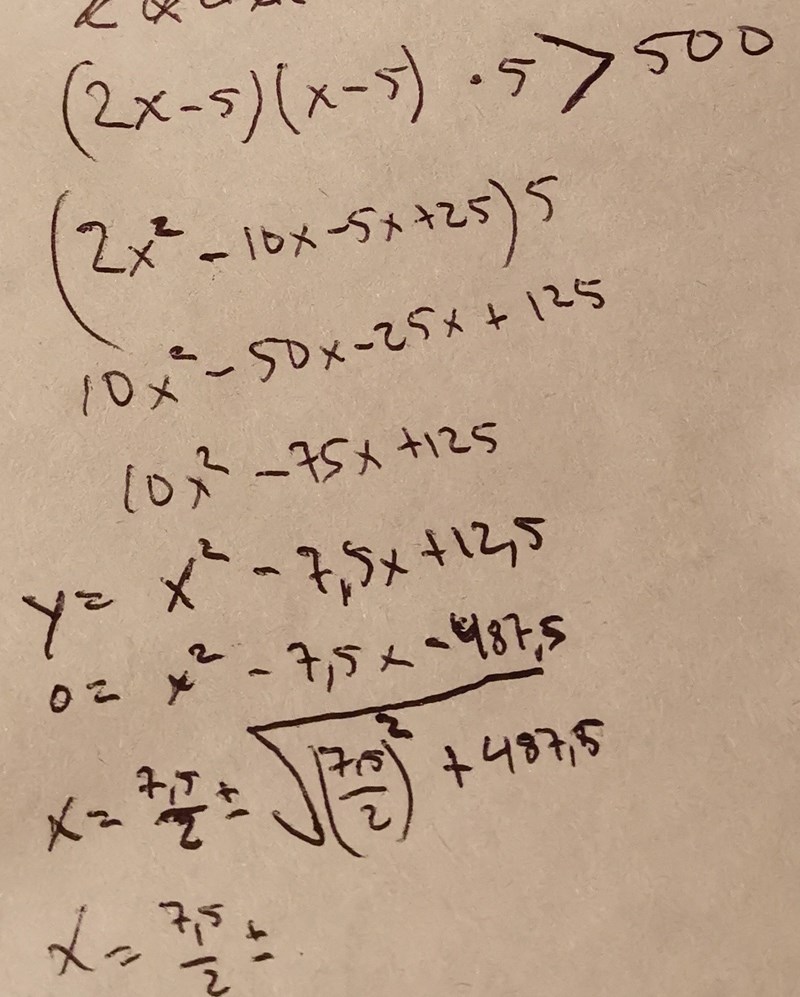 (2x-5)(x-5) · 5 > 500
(2x² - 10x - 5x + 25) 5
10x² - 50x - 25x + 125
10x² - 75x + 125
y = x² - 7,5x + 12,5
0 = x² - 7,5x - 487,5
x = 7,5/2 ± √((7,5/2)² + 487,5)
x = 7,5/2 ±